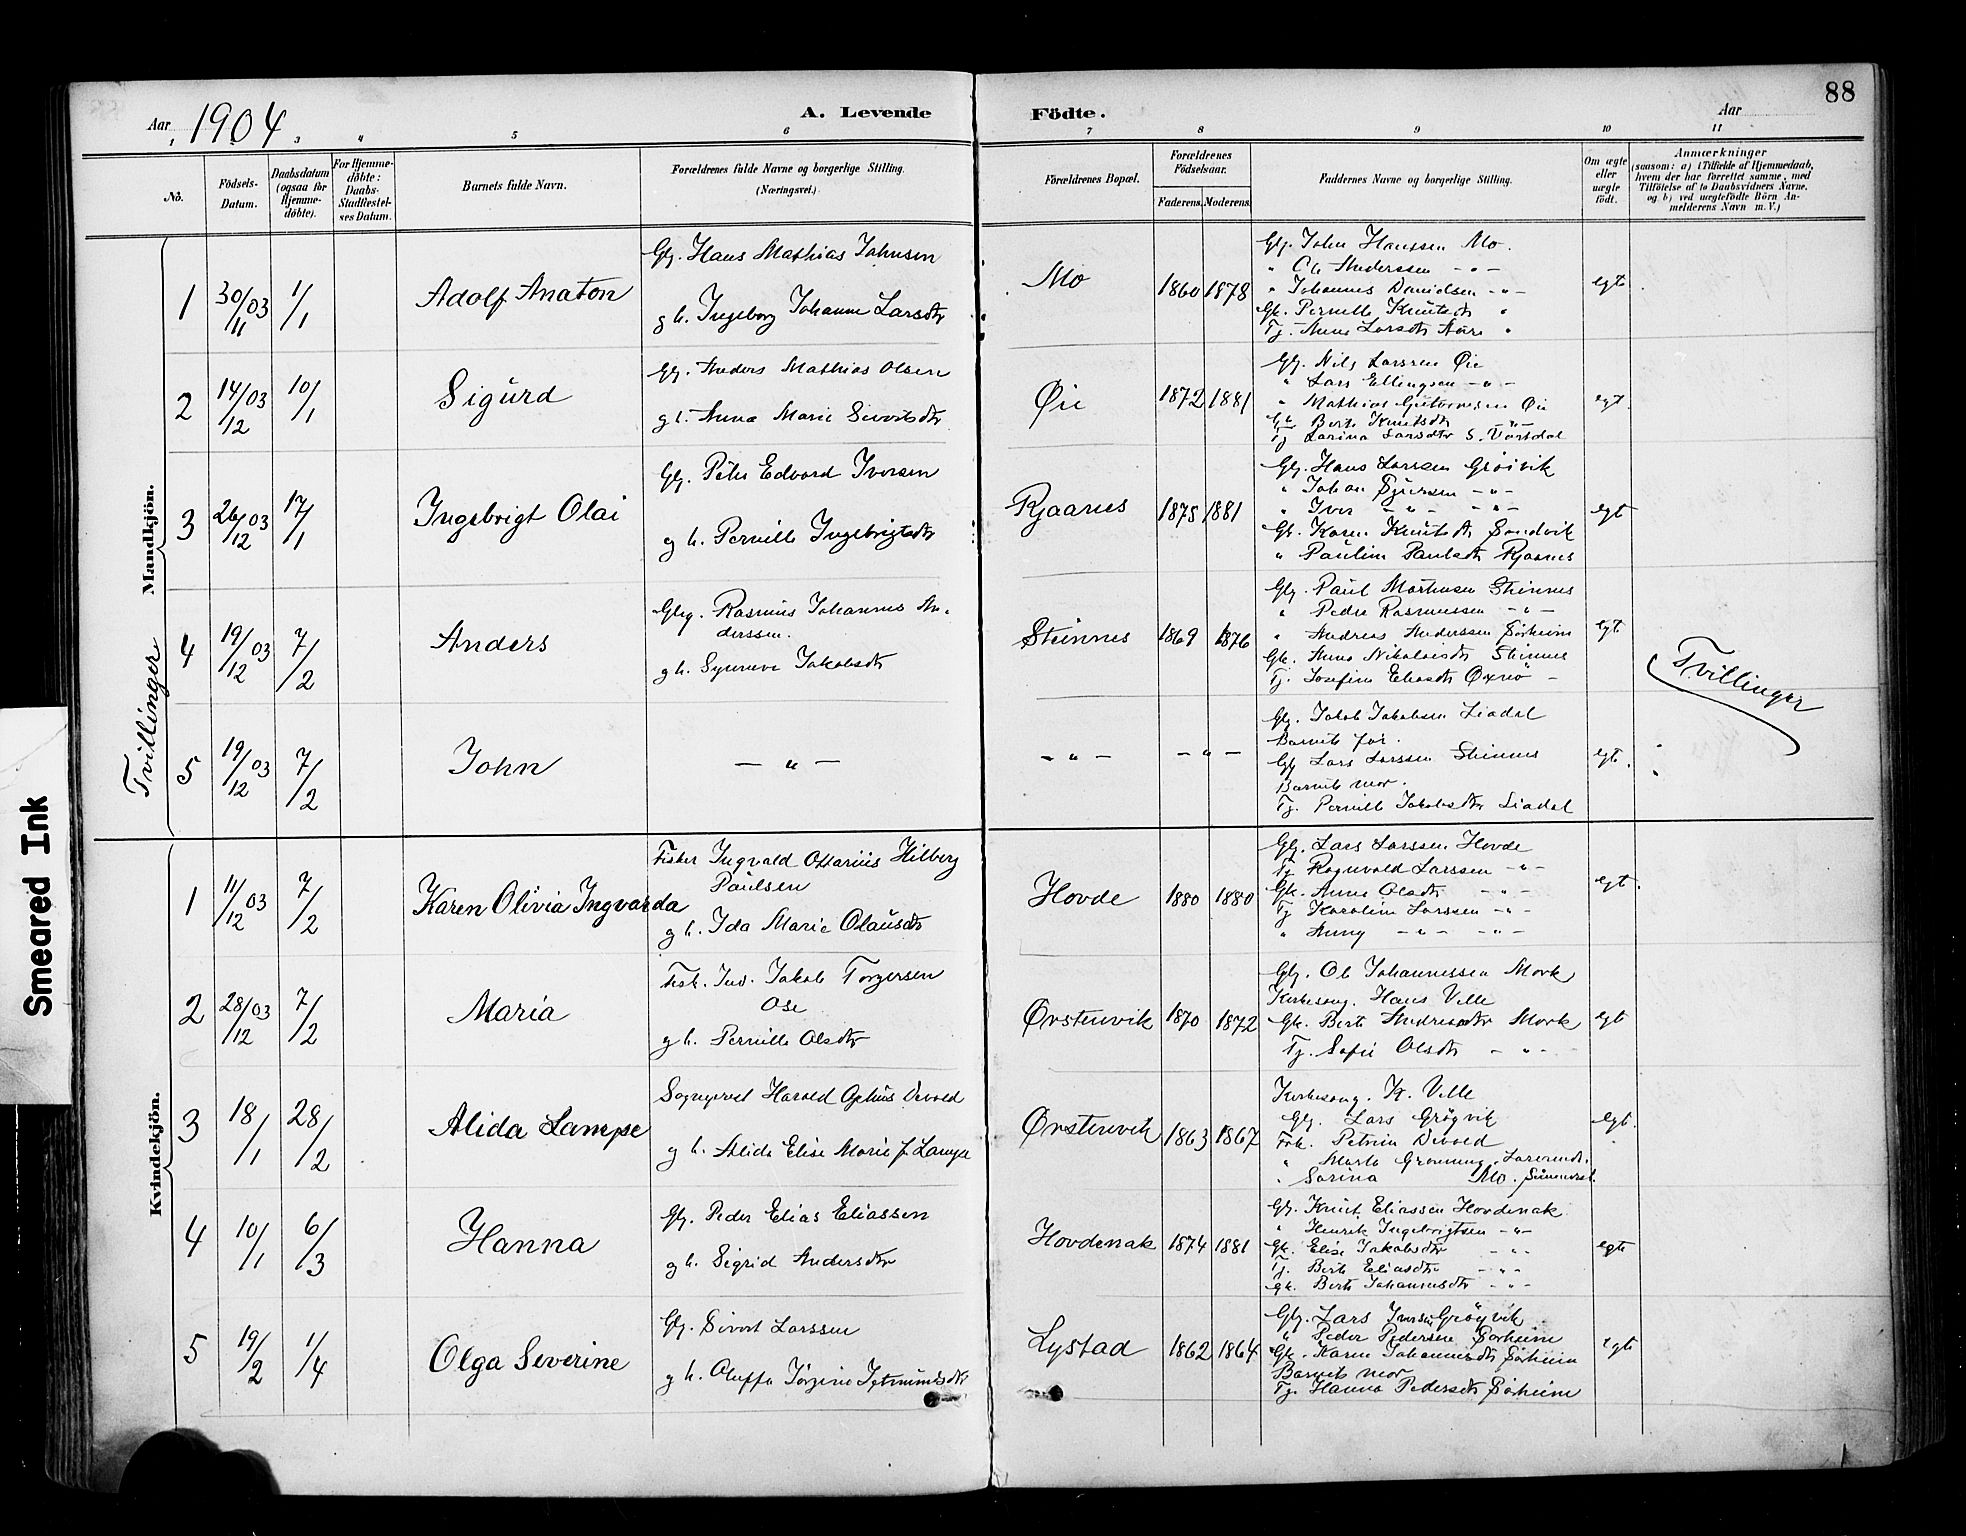 88
Aar 1904
A. Levende Födte.
Aar
1 3 4 5 6 7 8 9 10 11
No.
Födsels-Datum.
Daabsdatum (ogsaa for Hjemmedöbte).
For Hjemmedöbte: Daabs-Stadfæstelses Datum.
Barnets fulde Navn.
Forældrenes fulde Navne og borgerlige Stilling. (Næringsvei.)
Forældrenes Bopæl.
Forældrenes Födselsaar.
Faderens. Moderens.
Faddernes Navne og borgerlige Stilling.
Om ægte eller uægte födt.
Anmærkninger
(saasom: a) i Tilfælde af Hjemmedaab, hvem der har forrettet samme, med Tilföielse af to Daabsvidners Navne, og b) ved uægtefödte Börn Anmelderens Navn m. V.)
Mandkjön.
1 30/11 03 1/1 Adolf Anaton
Gbr. Hans Mathias Johnsen
g h. Ingeborg Johanne Larsdtr
Mo 1860 1878
Gbr. John Hanssen Mo.
" Ole Anderssen - " -
" Johannes Danielsen - " -
Gk. Pernille Knutsdtr "
Tj. Anne Larsdtr Aure "
egt.
2 14/12 03 10/1 Sigurd
Gbr. Anders Mathias Olsen
g h. Anna Marie Sivertsdtr
Øie 1872 1881
Gbr. Nils Larssen Øie
" Lars Ellingsen - " -
" Mathias Guttormsen Øie
Gk. Berte Knutsdtr - " -
Tj Larina Larsdtr S. Vartdal
egt.
3 26/12 03 17/1 Ingebrigt Olai
Gbr. Peter Edvard Iversen
g h. Pernille Ingebrigtsdtr
Rjaanes 1875 1881
Gbr. Hans Larssen Grøivik
" Johan - " -
" Iver - " - - " -
Gk. Karen Knutsdtr Sandvik
" Pauline Paulsdtr Rjaanes
egt
4 19/12 03 7/2 Anders
Gbr. Rasmus Johannes Anderssen.
g h. Synneve Jakobsdtr
Steinnes 1869 1876
Gbr. Paul Martinsen Steinnes
" Peder Rasmussen - " -
" Andreas Anderssen Sørheim
Gk. Anna Nikolaisdtr Steinnes
Tj. Josefine Eliasdtr
egt.
Tvillinger
Tvillinger
5 19/12 03 7/2 John
- " -
- " -
- " -
Gbr. Jakob Jakobsen Liadal
Barnets far.
Gbr Lars Larssen Steinnes
Barnets mor.
Tj. Pernille Jakobsdtr Liadal
egt.
Kvindekjön.
1 11/12 03 7/2 Karen Olivia Ingvarda
Fisker Ingvald Ottarius Hilberg Paulsen
g h. Ida Marie Olausdtr
Hovde 1880 1880
Gbr. Lars Larssen Hovde
Tj Ragnvald Larssen - " -
Gk. Anne Olsdtr - " -
Tj Karoline Larssen - " -
" Anny - " - - " -
egt.
2 28/12 03 7/2 Maria
Fisk. Ind. Jakob Torgersen Ose
g h. Pernille Olsdtr
Ørstenvik 1870 1872
Gbr. Ole Johannessen Mork
Kirkesang. Hans Velle
Gk. Berte Andreasdtr Mork
Tj. Sofie Olsdtr - " -
egt
3 18/1 28/2 Alida Lampe
Sogneprest Harald Devold
g h. Alida Elise Marie f. Lampe
Ørstenvik 1863 1867
Kirkesang. H. Velle
Gbr. Lars Grøgvik
Frk. Petrine Devold
" Marta Grønning Lærerinde.
" Sorina Mo.
egt.
4 10/1 6/3 Hanna
Gbr. Peder Elias Eliassen
g h. Sigrid Andersdtr
Hovdenak 1874 1881
Gbr. Knut Eliassen Hovdenak
" Henrik Ingebrigtsen - " -
Gk. Elise Jakobsdtr - " -
Tj. Berte Eliasdtr - " -
gk. Berte Johannesdtr - " -
egte
5 19/2 1/4 Olga Severine
Gbr. Sivert Larssen
g h. Oluffa Jørgine
Lystad 1862 1864
Gbr. Lars Iversen Grøgvik
" Peder Pedersen Sørheim
Gk. Karen Johannesdtr Sørheim
Barnets mor
Tj. Hanna Pedersdtr Sørheim
egte
Smeared Ink